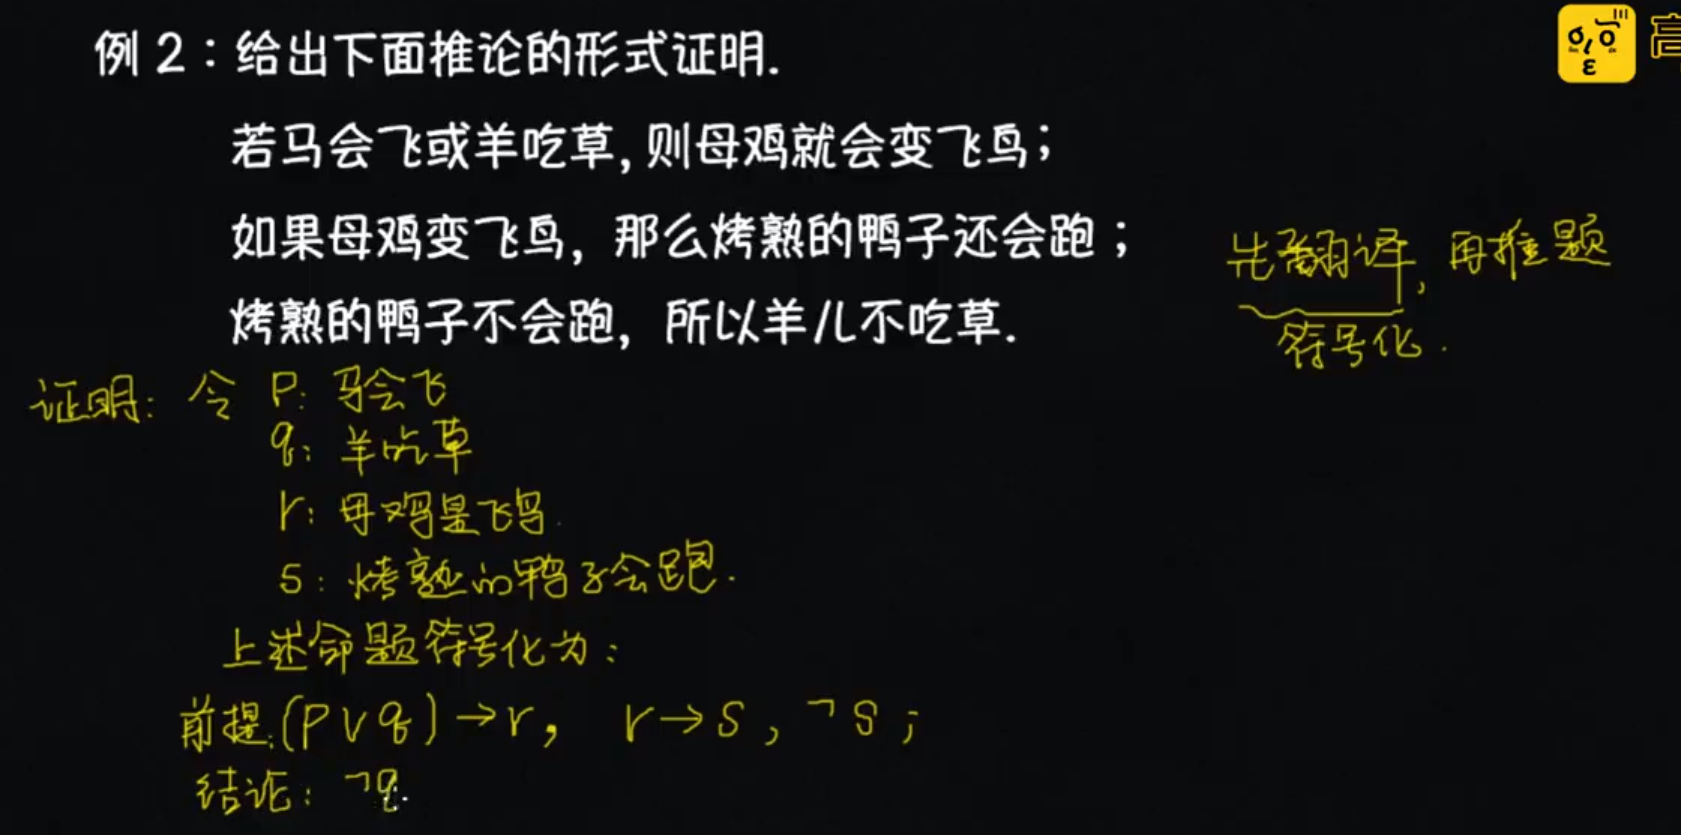 例 2：给出下面推论的形式证明.
若马会飞或羊吃草，则母鸡就会变飞鸟；
如果母鸡变飞鸟，那么烤熟的鸭子还会跑；
烤熟的鸭子不会跑，所以羊儿不吃草.
先翻译，再推题
符号化.
证明：令 P：马会飞
q：羊吃草
r：母鸡是飞鸟.
s：烤熟的鸭子会跑.
上述命题符号化为：
前提：(P∨q)→r， r→s，¬s；
结论：¬q
高